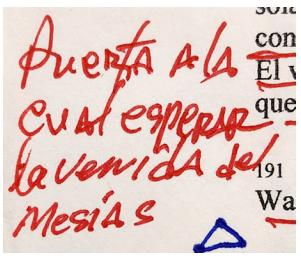 Puerta a la
cual esperar
la venida del
Mesías
com
El v
que
191
Wa